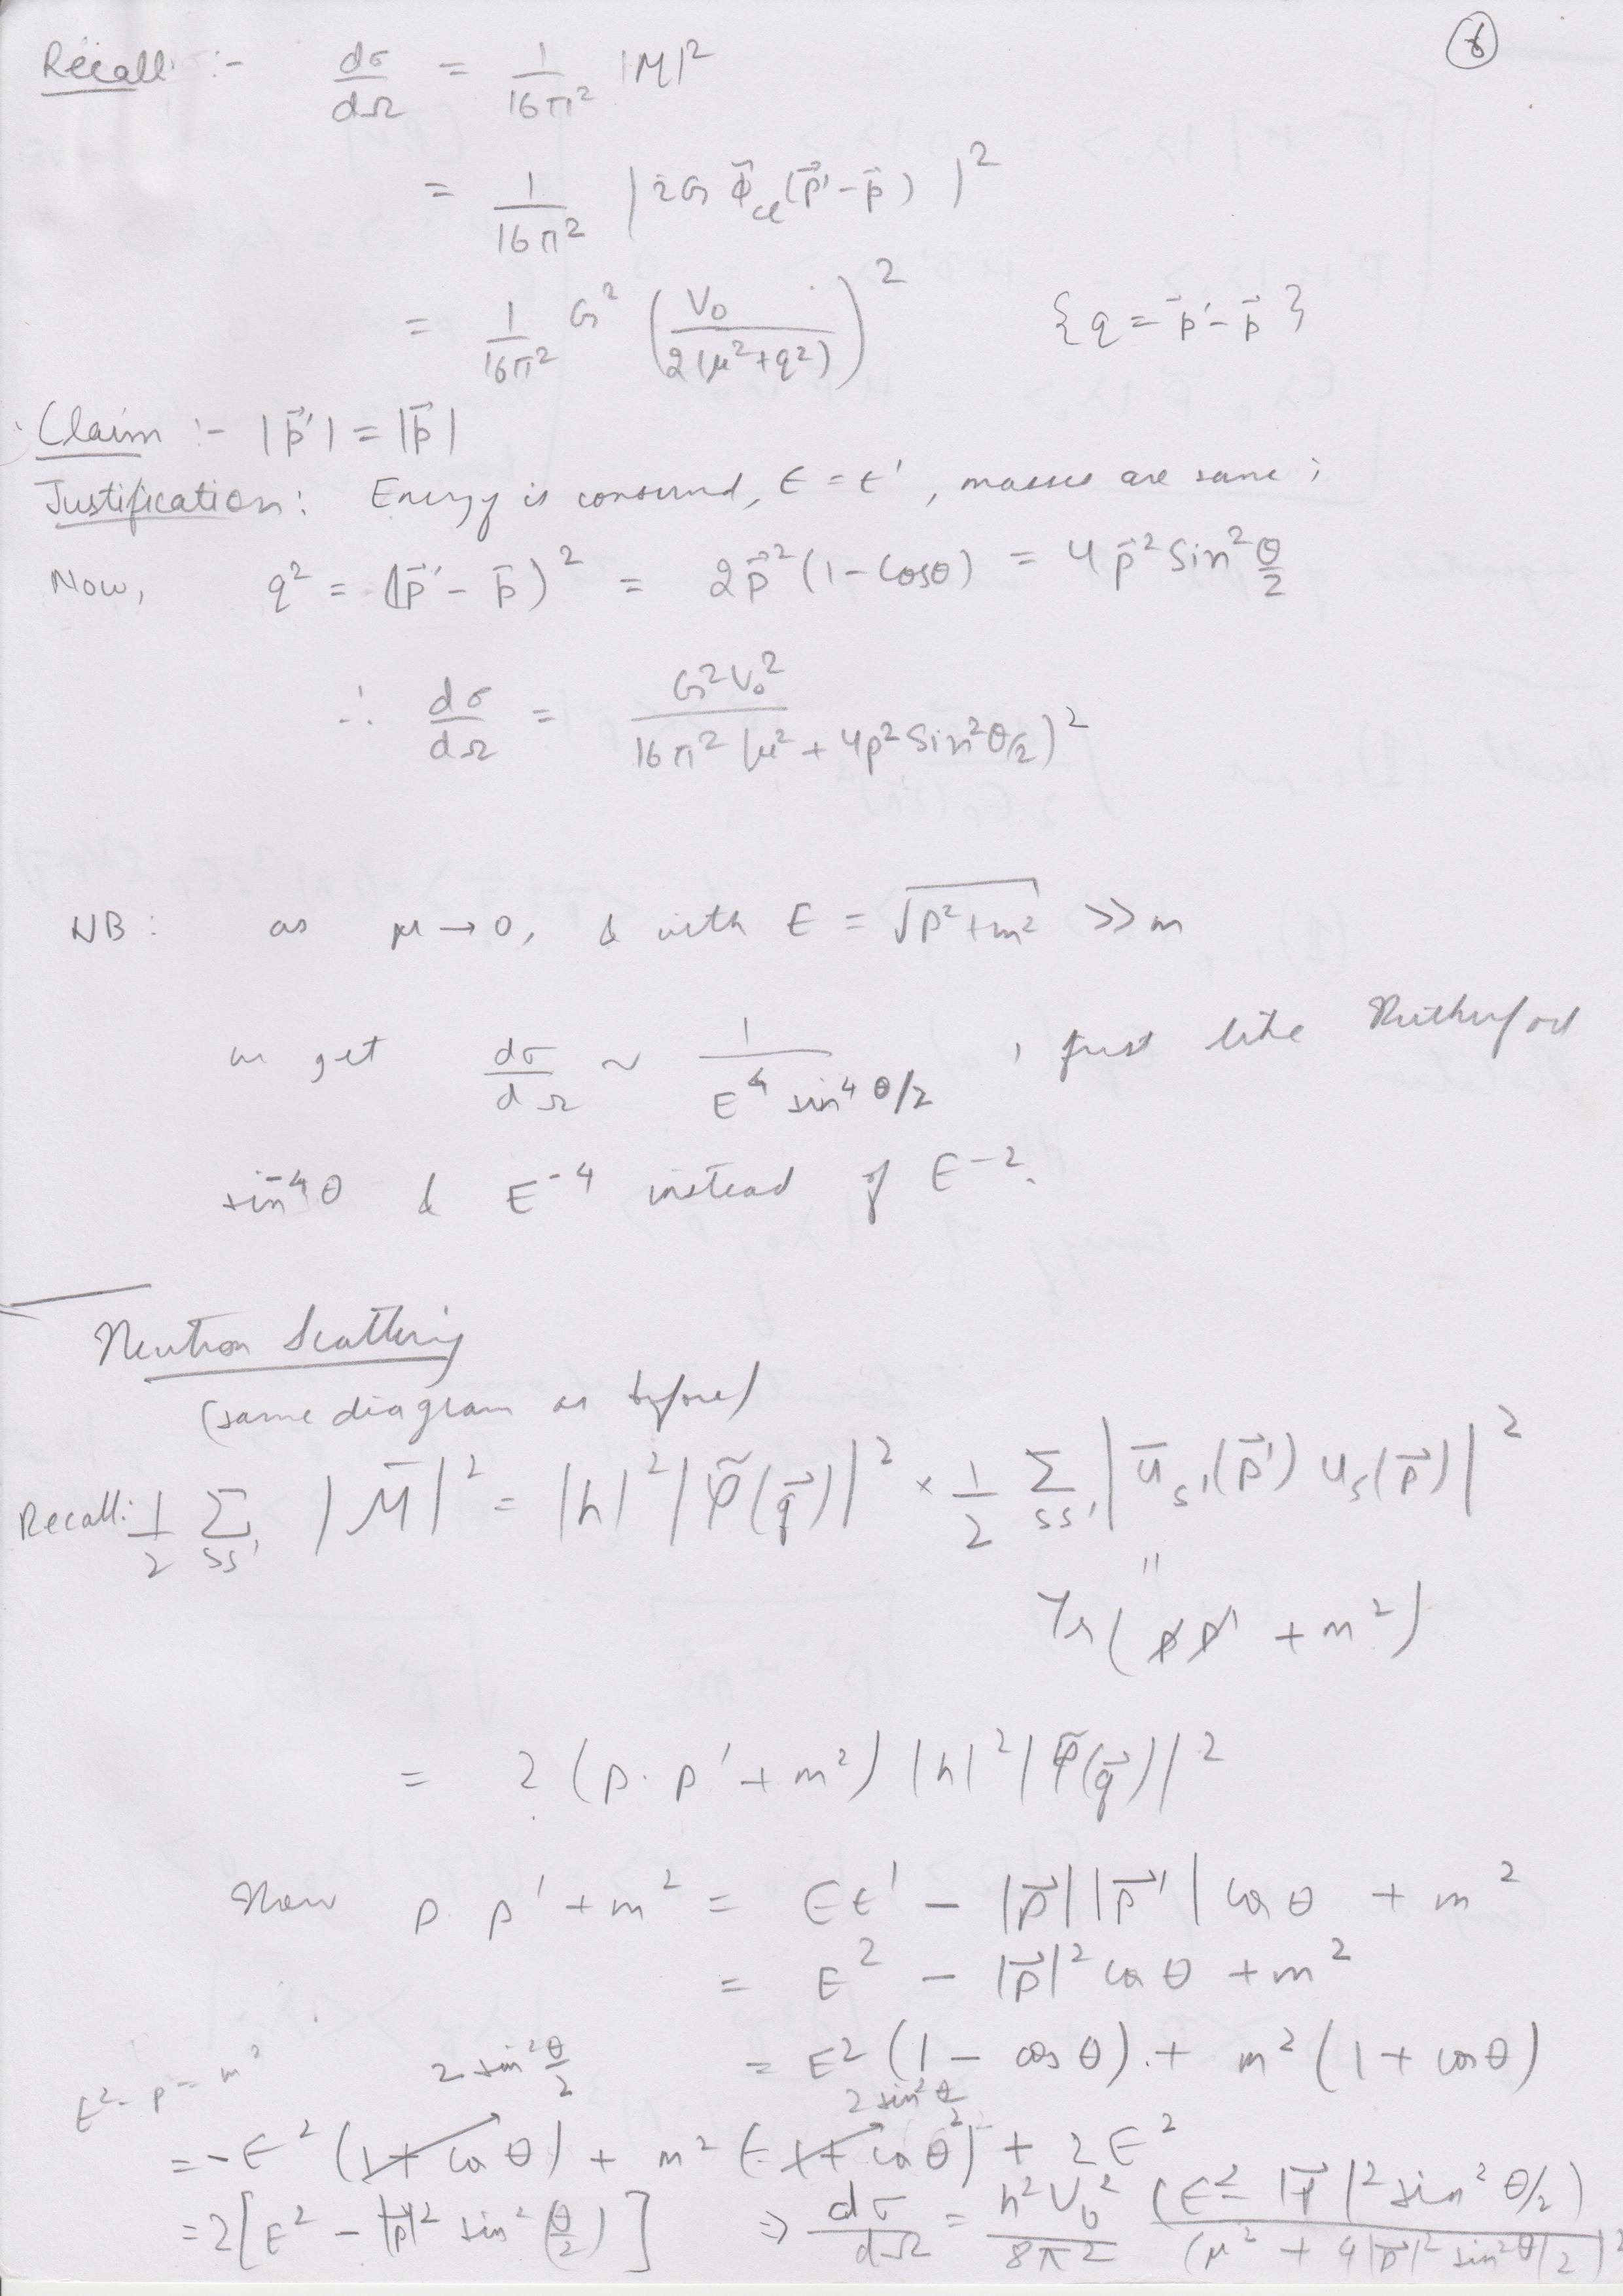 ⑧
Recall :- dσ/dΩ = 1/16π² |M|²
= 1/16π² |2G Φ̃_cl(p⃗'-p⃗)|²
= 1/16π² G² (V₀/2(μ²+q²))² {q = p⃗'-p⃗}
Claim :- |p⃗'| = |p⃗|
Justification: Energy is conserved, E = E', masses are same;
Now, q² = (p⃗'-p⃗)² = 2p⃗²(1-Cosθ) = 4p⃗² Sin² θ/2
∴ dσ/dΩ = G²V₀²/16π²(μ² + 4p² Sin²θ/2)²
NB: as μ→0, & with E = √(p²+m²) >> m
we get dσ/dΩ ~ 1/E⁴ sin⁴ θ/2, just like Rutherford
sin⁻⁴θ & E⁻⁴ instead of E⁻².
Neutron Scattering
(same diagram as before)
Recall: 1/2 Σ_ss' |M̄|² = |h|² |φ̃(q⃗)|² × 1/2 Σ_ss' |ū_s'(p⃗') u_s(p⃗)|²
"
Tr(p̸p̸' + m²)
= 2(p·p' + m²) |h|² |φ̃(q⃗)|²
Now p·p' + m² = EE' - |p⃗||p⃗'| cos θ + m²
= E² - |p⃗|² cos θ + m²
= E²(1 - cos θ) + m²(1 + cos θ)
E² - p = m² 2 sin² θ/2 2 sin² θ/2
= -E²(1+cos θ) + m²(1+cos θ) + 2E²
= 2[E² - |p⃗|² sin²(θ/2)] ⇒ dσ/dΩ = h²V₀²/8π² (E² - |p⃗|² sin² θ/2)/(μ² + 4|p⃗|² sin²θ/2)²